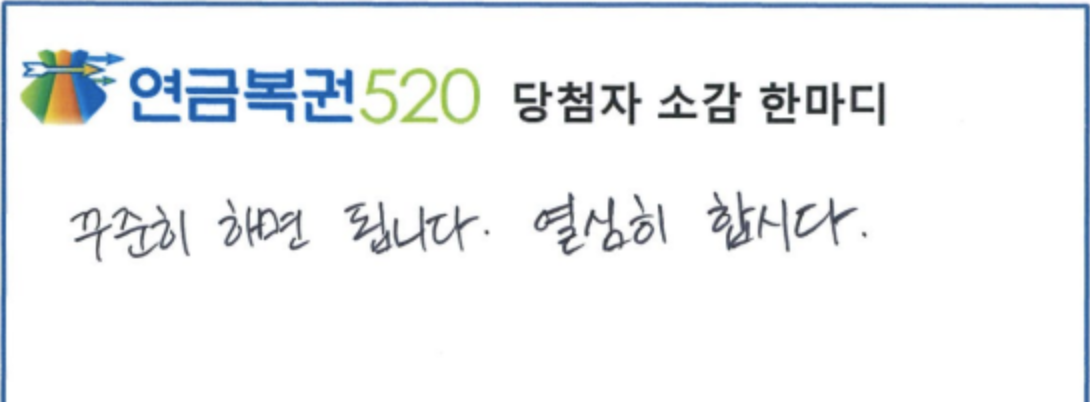 연금복권520 당첨자 소감 한마디
꾸준히 해면 됩니다. 열심히 합시다.